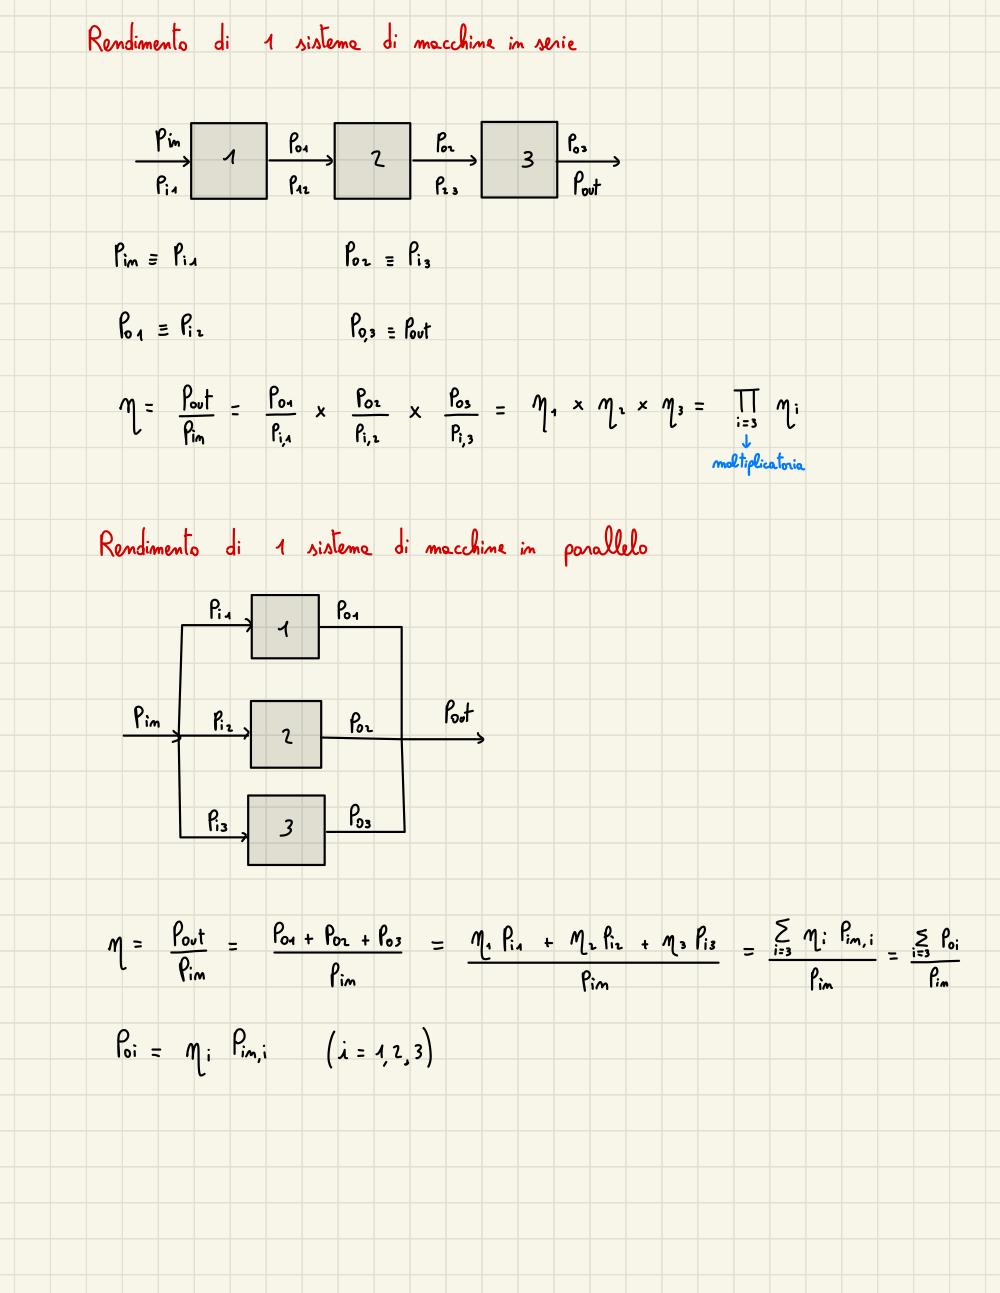 Rendimento di 1 sistema di macchine in serie
Pin Po1 Po2 Po3
1 2 3
Pi1 Pi2 Pi3 Pout
Pin ≡ Pi1 Po2 ≡ Pi3
Po1 ≡ Pi2 Po,3 ≡ Pout
η = Pout/Pin = Po1/Pi,1 × Po2/Pi,2 × Po3/Pi,3 = η1 × η2 × η3 = ∏ i=3 ηi
↓
moltiplicatoria
Rendimento di 1 sistema di macchine in parallelo
Pi1 1 Po1
Pin Pi2 2 Po2 Pout
Pi3 3 Po3
η = Pout/Pin = (Po1 + Po2 + Po3)/Pin = (η1 Pi1 + η2 Pi2 + η3 Pi3)/Pin = (∑ i=3 ηi Pin,i)/Pin = (∑ i=3 Poi)/Pin
Poi = ηi Pin,i (i = 1,2,3)